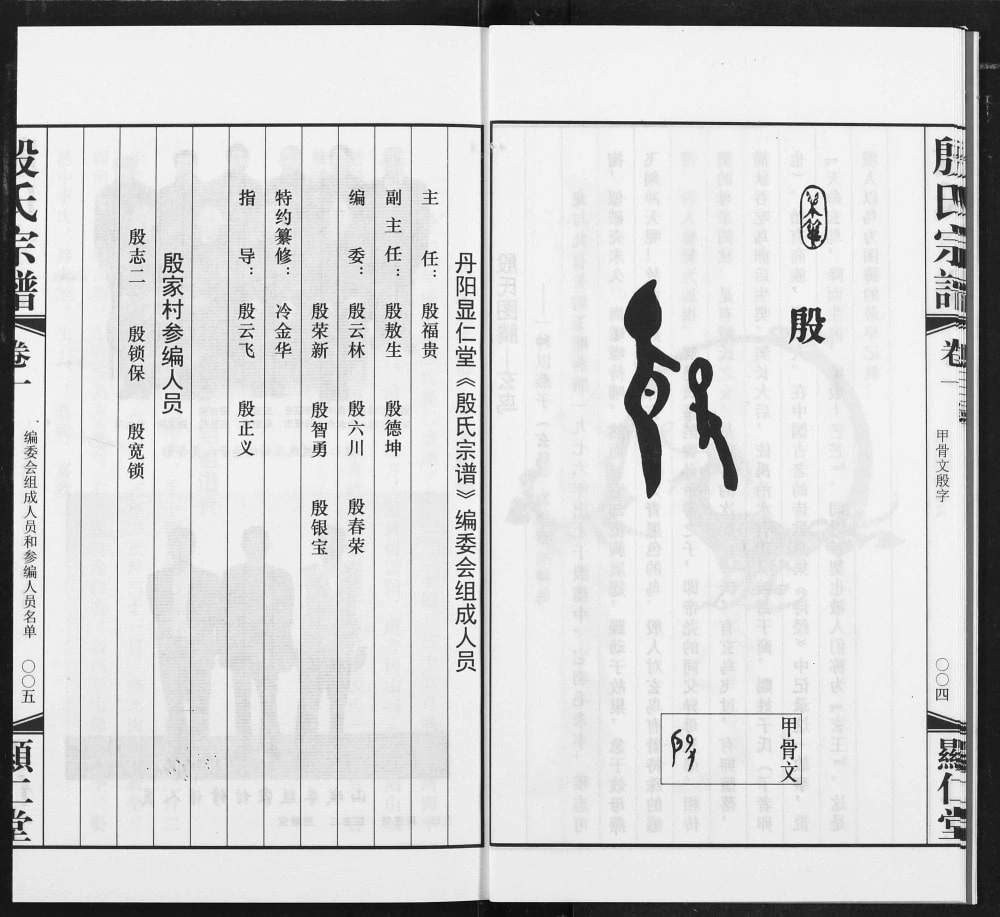 殷氏宗譜
卷一
甲骨文殷字
〇〇四
顯仁堂
殷
甲骨文
丹阳显仁堂《殷氏宗谱》编委会组成人员
主任：殷福贵
副主任：殷敖生 殷德坤
编委：殷云林 殷六川 殷春荣
殷荣新 殷智勇 殷银宝
特约纂修：冷金华
指导：殷云飞 殷正义
殷家村参编人员
殷志二 殷锁保 殷宽锁
殷氏宗譜
卷一
编委会组成人员和参编人员名单
〇〇五
顯仁堂